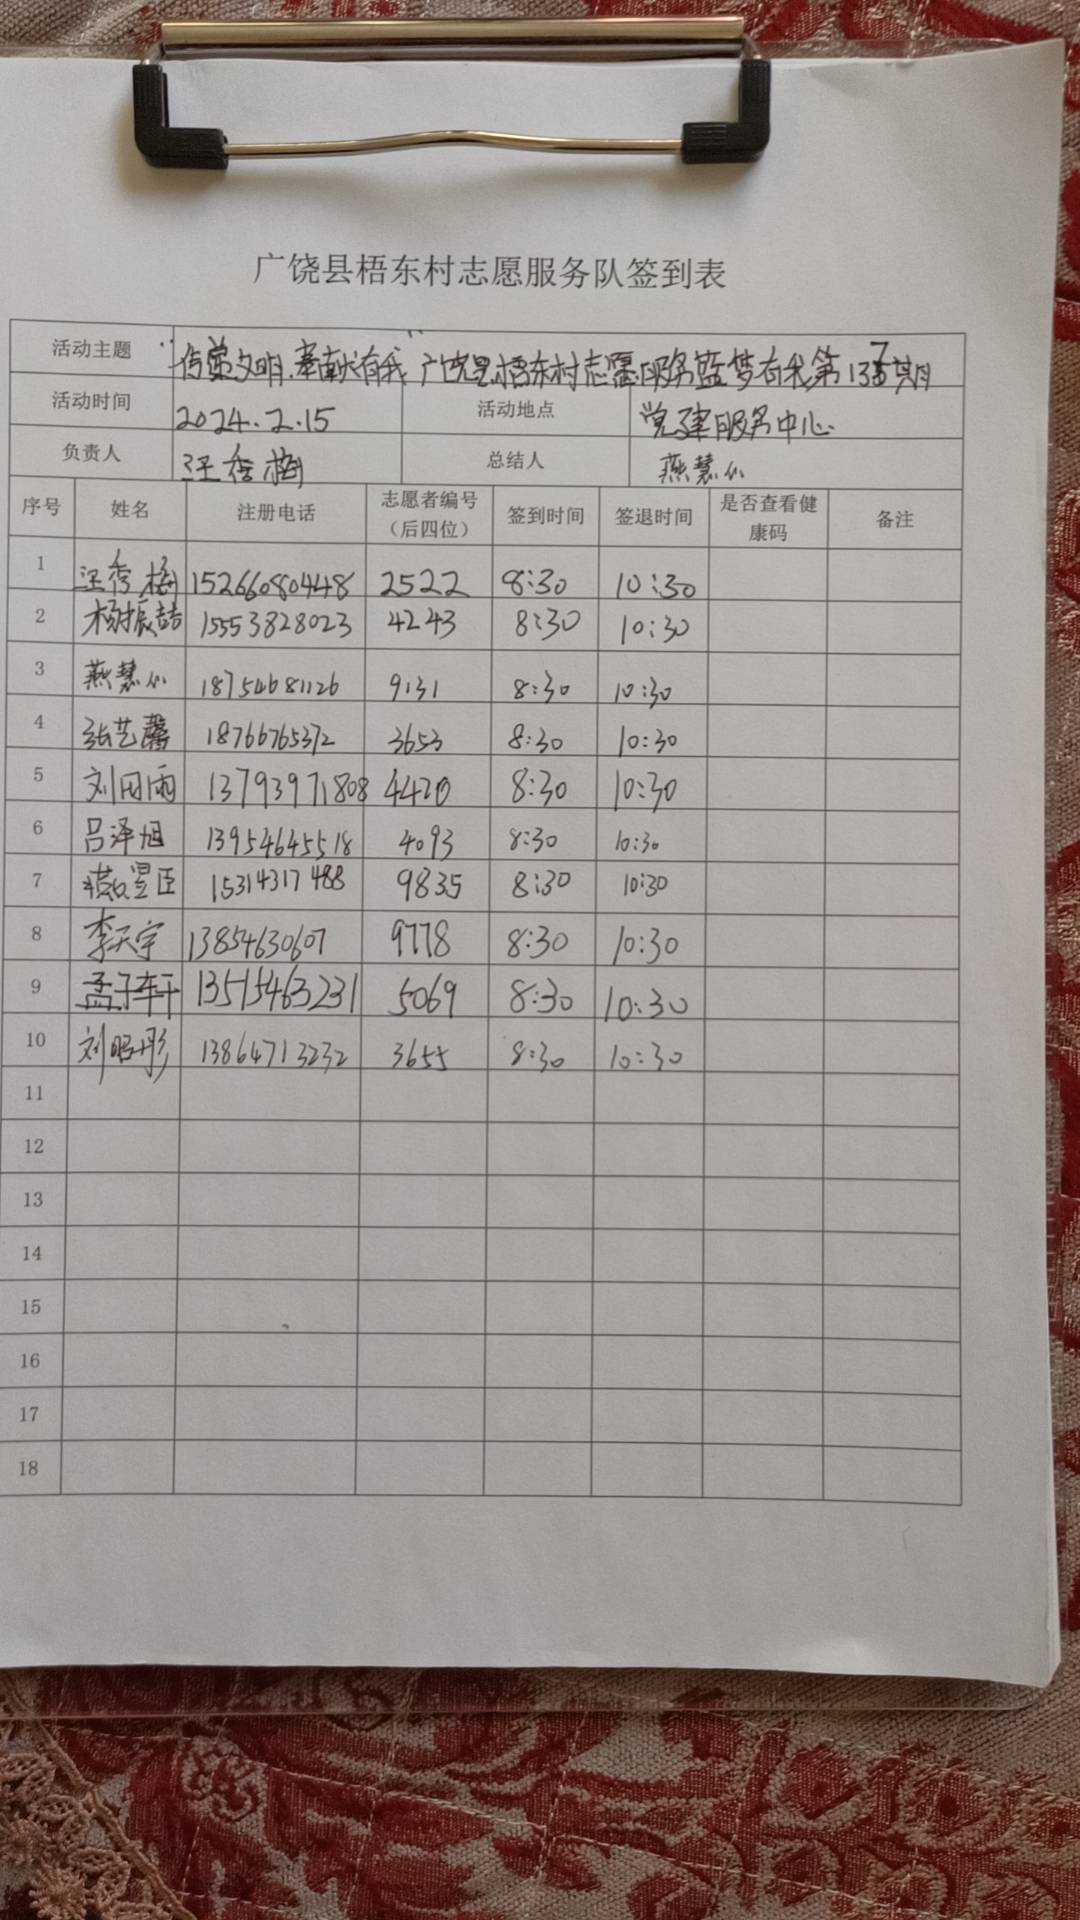 广饶县梧东村志愿服务队签到表
活动主题 "传递文明.奉献有我" 广饶县梧东村志愿服务蓝梦有我第137期
活动时间 2024.2.15 活动地点 党建服务中心
负责人 汪秀梅 总结人 燕慧心
序号 姓名 注册电话 志愿者编号（后四位） 签到时间 签退时间 是否查看健康码 备注
1 汪秀梅 15266080448 2522 8:30 10:30
2 杨振喆 15553828023 4243 8:30 10:30
3 燕慧心 18754681126 9131 8:30 10:30
4 张艺馨 18766765372 3653 8:30 10:30
5 刘雨 13793971808 4420 8:30 10:30
6 吕泽旭 13954645518 4093 8:30 10:30
7 臣 15314317488 9835 8:30 10:30
8 李天宇 13854630607 9778 8:30 10:30
9 孟子轩 13515463231 5069 8:30 10:30
10 刘昭彤 13864713232 3655 8:30 10:30
11
12
13
14
15
16
17
18